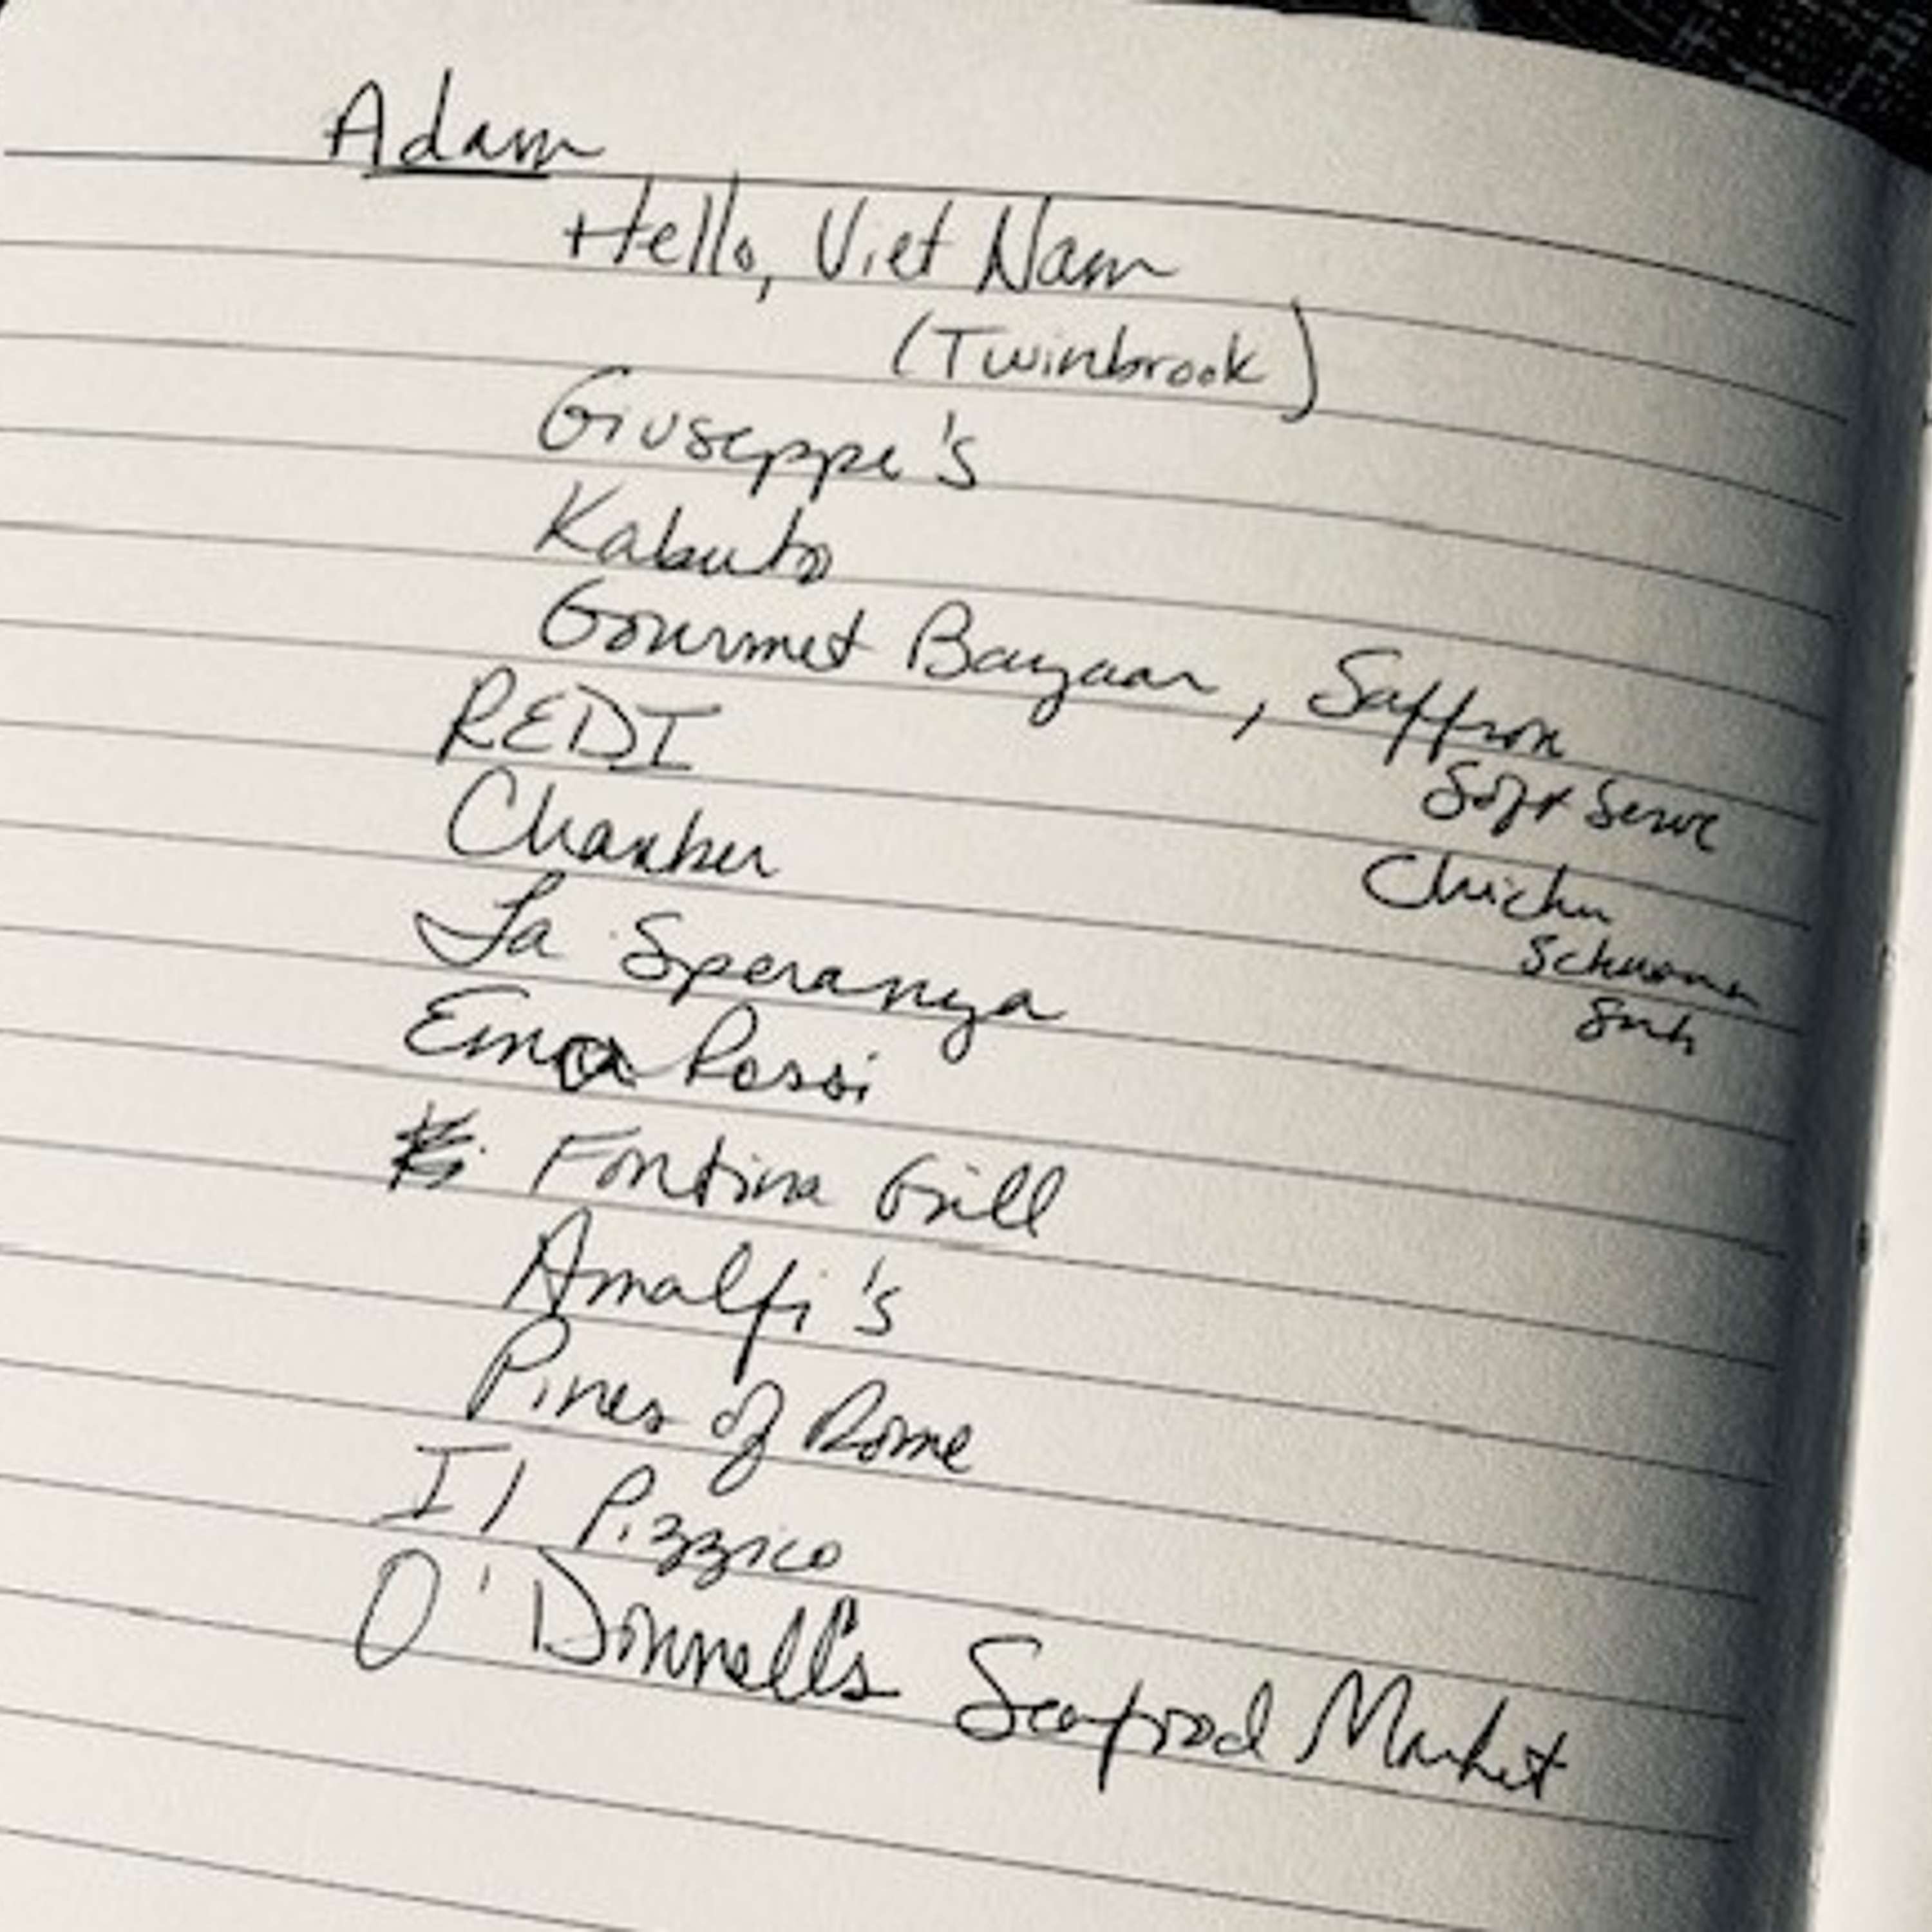 Adam
Hello, Viet Nam
(Twinbrook)
Giuseppe's
Kabuto
Gourmet Bazaar, Saffron
Soft Serve
REDI
Chamber
Chicken
La Speranza
Rossi
Fontina Grill
Amalfi's
Pines of Rome
Il Pizzico
O'Donnell's Seafood Market